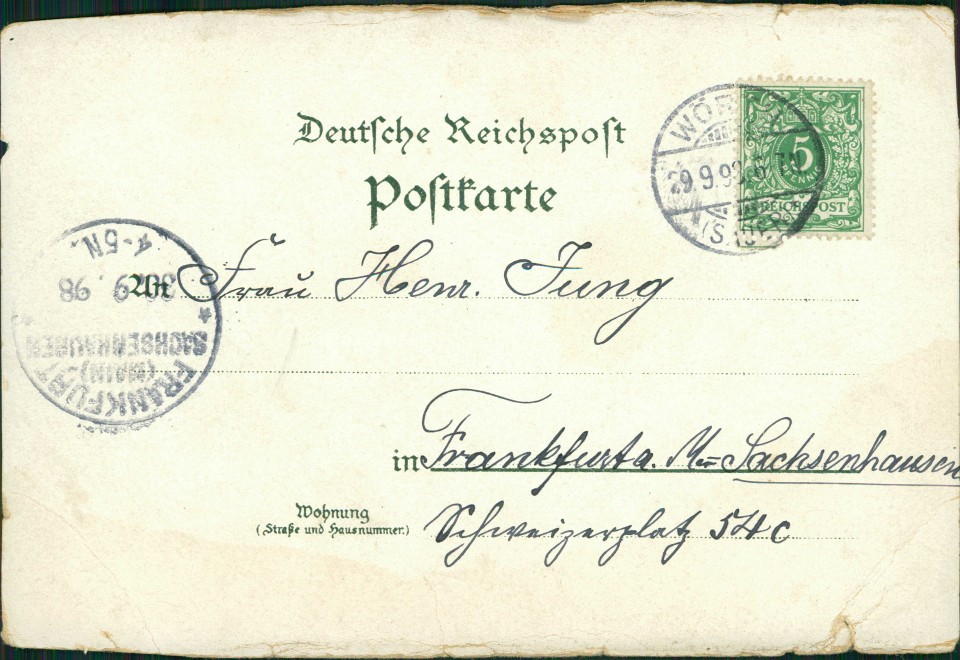 Deutsche Reichspost
Postkarte
WÖR
29.9.98
5
PFENNIG
REICHSPOST
An Frau Henr. Jung
in Frankfurt a. M.= Sachsenhausen
Wohnung
(Straße und Hausnummer.)
Schweizerplatz 54c
FRANKFURT
(MAIN)-
SACHSENHAUSEN
30.9.98
4-5N.